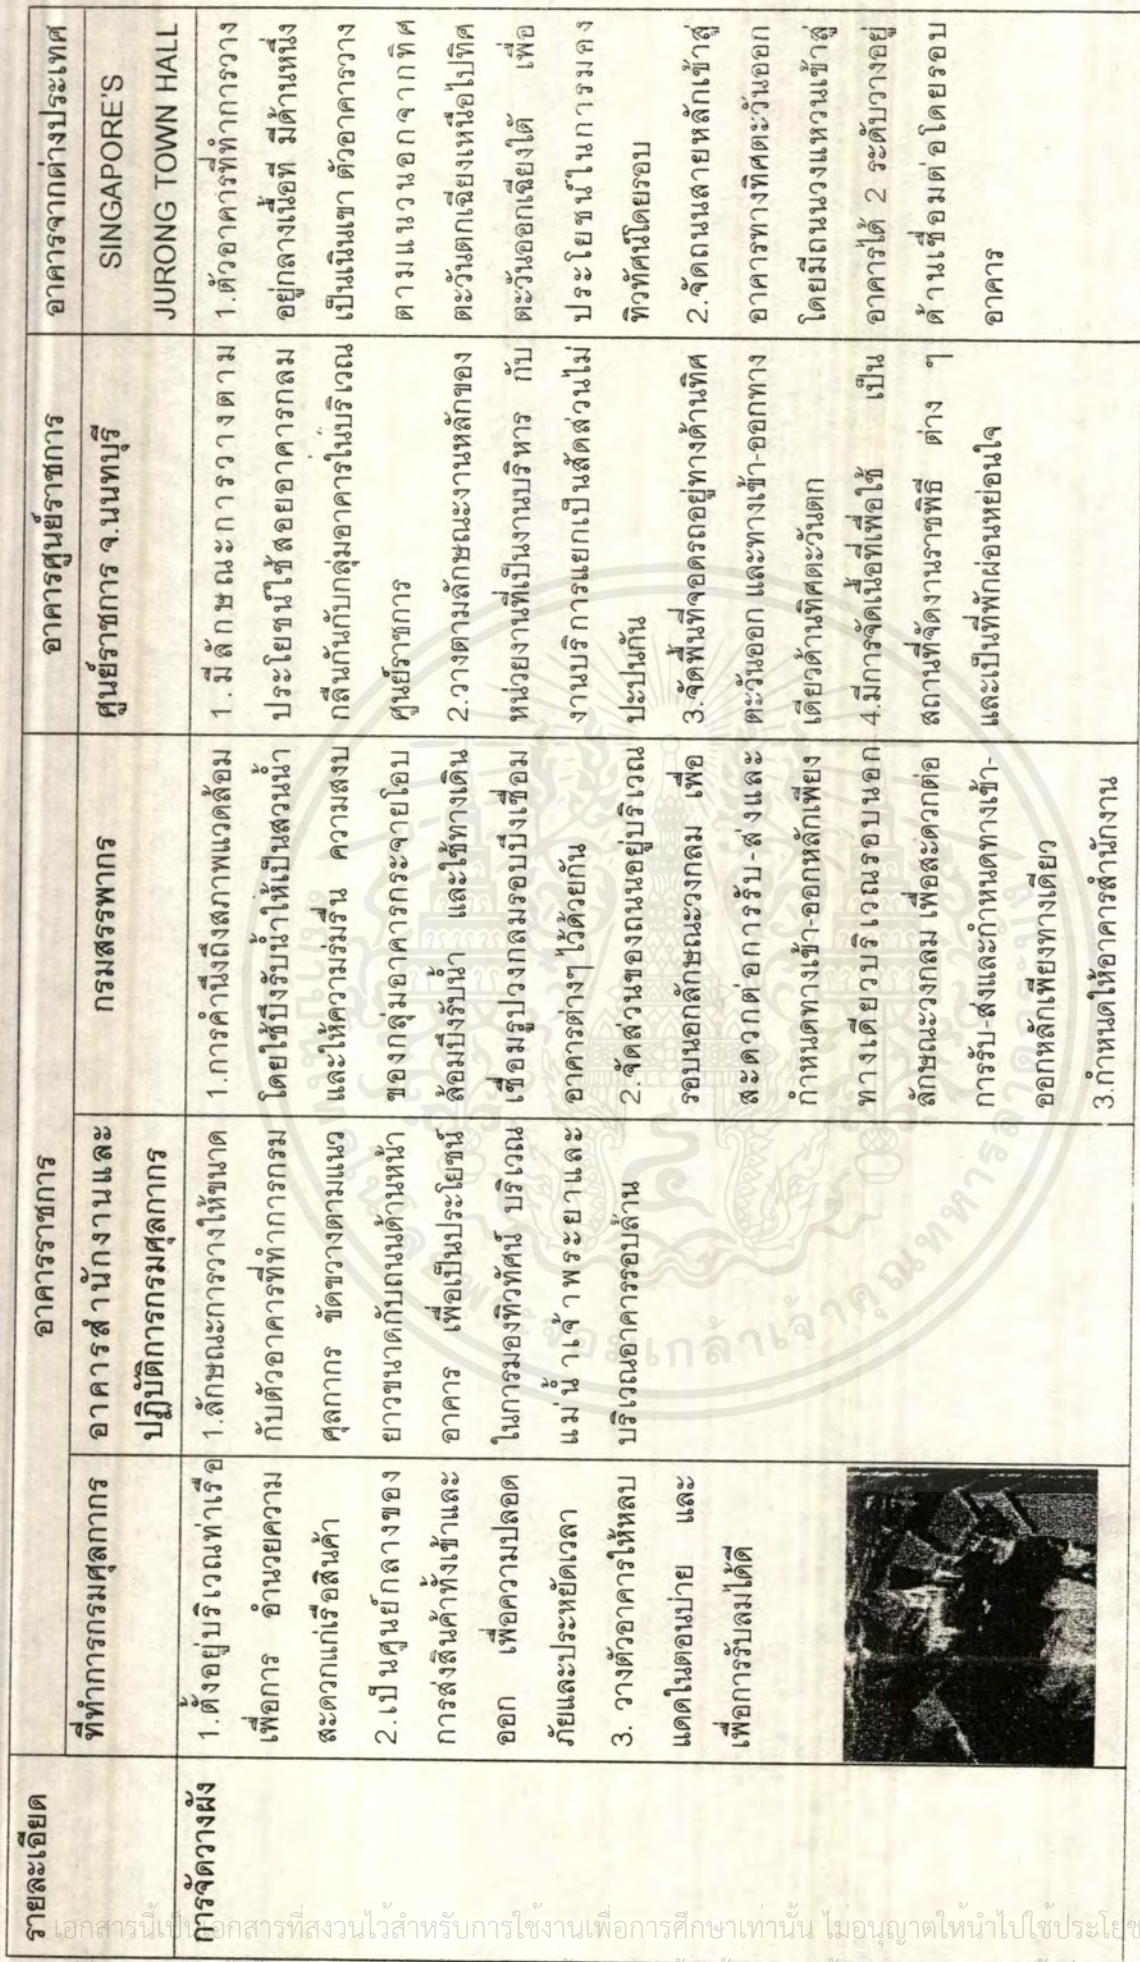 รายละเอียด
อาคารราชการ
อาคารศูนย์ราชการ
อาคารจากต่างประเทศ
ที่ทำการกรมศุลกากร
อาคารสำนักงานและ
ปฏิบัติการกรมศุลกากร
กรมสรรพากร
ศูนย์ราชการ จ.นนทบุรี
SINGAPORE'S
JURONG TOWN HALL
การจัดวางผัง
1.ตั้งอยู่บริเวณท่าเรือ
เพื่อการ อำนวยความ
สะดวกแก่เรือสินค้า
2.เป็นศูนย์กลางของ
การส่งสินค้าทั้งเข้าและ
ออก เพื่อความปลอด
ภัยและประหยัดเวลา
3. วางตัวอาคารให้หลบ
แดดในตอนบ่าย และ
เพื่อการรับลมได้ดี
1.ลักษณะการวางให้ขนาด
กับตัวอาคารที่ทำการกรม
ศุลกากร ขัดขวางตามแนว
ยาวขนาดกับถนนด้านหน้า
อาคาร เพื่อเป็นประโยชน์
ในการมองทิวทัศน์ บริเวณ
แม่น้ำเจ้าพระยาและ
บริเวณอาคารรอบล้าน
1.การคำนึงถึงสภาพแวดล้อม
โดยใช้บึงรับน้ำให้เป็นสวนน้ำ
และให้ความร่มรื่น ความสงบ
ของกลุ่มอาคารกระจายโอบ
ล้อมบึงรับน้ำ และใช้ทางเดิน
เชื่อมรูปวงกลมรอบบึงเชื่อม
อาคารต่างๆ ไว้ด้วยกัน
2.จัดส่วนของถนนอยู่บริเวณ
รอบนอกลักษณะวงกลม เพื่อ
สะดวกต่อการรับ-ส่งและ
กำหนดทางเข้า-ออกหลักเพียง
ทางเดียวบริเวณรอบนอก
ลักษณะวงกลม เพื่อสะดวกต่อ
การรับ-ส่งและกำหนดทางเข้า-
ออกหลักเพียงทางเดียว
3.กำหนดให้อาคารสำนักงาน
1.มีลักษณะการวางตาม
ประโยชน์ใช้สอยอาคารกลม
กลืนกันกับกลุ่มอาคารในบริเวณ
ศูนย์ราชการ
2.วางตามลักษณะงานหลักของ
หน่วยงานที่เป็นงานบริหาร กับ
งานบริการแยกเป็นสัดส่วนไม่
ปะปนกัน
3.จัดพื้นที่จอดรถอยู่ทางด้านทิศ
ตะวันออก และทางเข้า-ออกทาง
เดียวด้านทิศตะวันตก
4.มีการจัดเนื้อที่เพื่อใช้ เป็น
สถานที่จัดงานราชพิธี ต่าง ๆ
และเป็นที่พักผ่อนหย่อนใจ
1.ตัวอาคารที่ทำการวาง
อยู่กลางเนื้อที่ มีด้านหนึ่ง
เป็นเนินเขา ตัวอาคารวาง
ตามแนวนอกจากทิศ
ตะวันตกเฉียงเหนือไปทิศ
ตะวันออกเฉียงใต้ เพื่อ
ประโยชน์ในการมอง
ทิวทัศน์โดยรอบ
2.จัดถนนสายหลักเข้าสู่
อาคารทางทิศตะวันออก
โดยมีถนนวงแหวนเข้าสู่
อาคารได้ 2 ระดับวางอยู่
ด้านเชื่อมต่อโดยรอบ
อาคาร
เอกสารนี้เป็นเอกสารที่สงวนไว้สำหรับการใช้งานเพื่อการศึกษาเท่านั้น ไม่อนุญาตให้นำไปใช้ประโยช